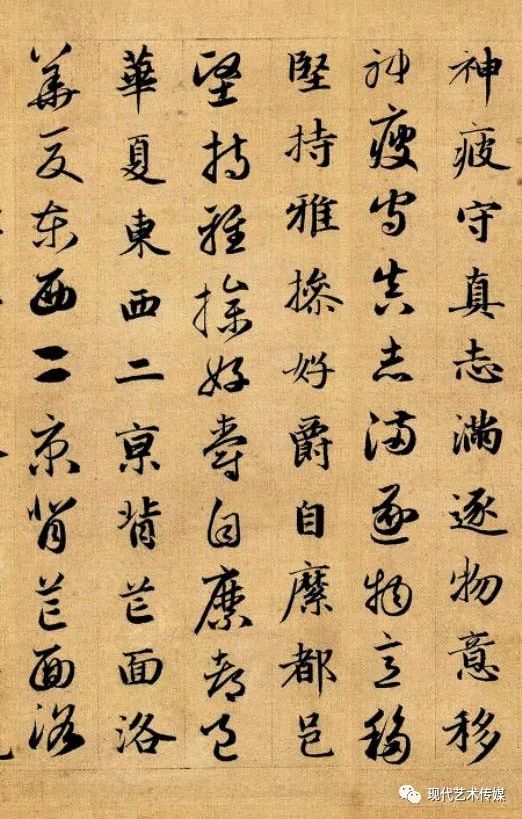 神疲守真志滿逐物意移
神疲守真志滿逐物意移
堅持雅操好爵自縻都邑
堅持雅操好爵自縻都邑
華夏東西二京背芒面洛
華夏東西二京背芒面洛
现代艺术传媒